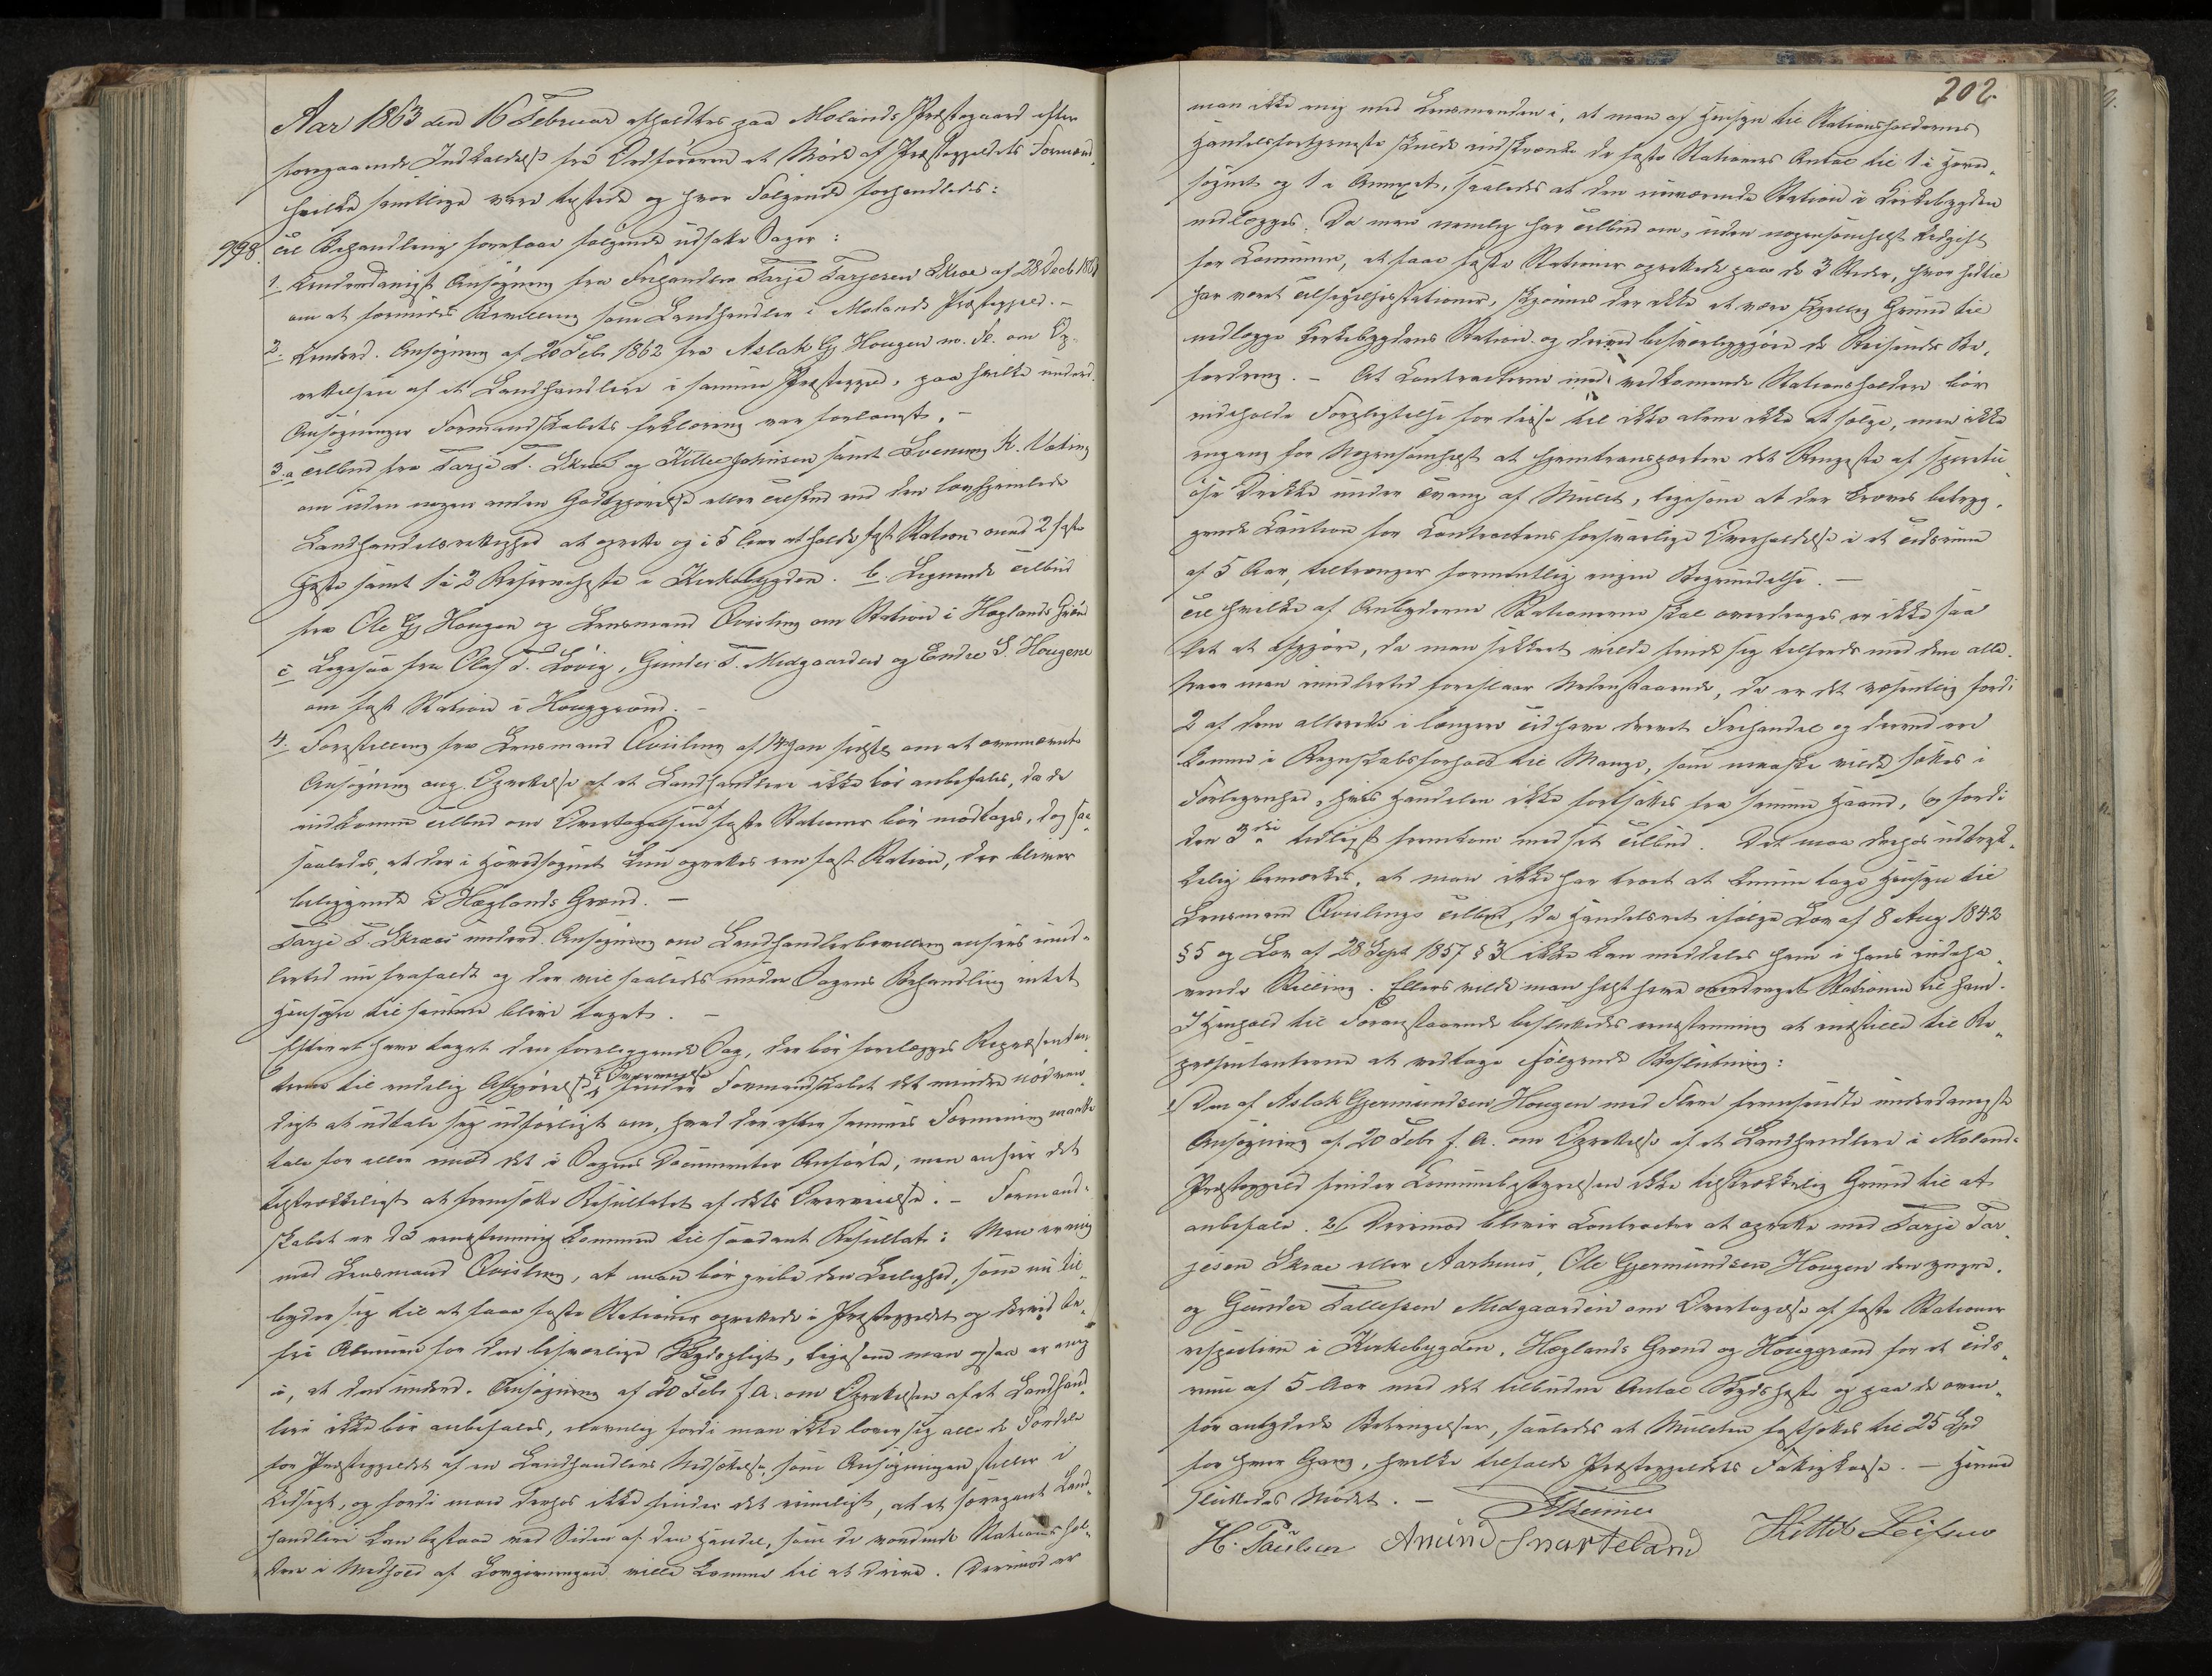 Aar 1863 den 16 Februar afholdtes paa Molands Præstegaard efter
foregaaende Indkaldelse fra Ordføreren et Møde af Præstegjeldets Formænd,
hvilke samtlige vare tilstede og hvor Følgende forhandledes:
998. Til Behandling foretoges følgende udsatte Sager:
1. Underdanigst Ansøgning fra Frihandler Tarje Tarjesen Skree af 28 Decb 186
om at forundes Bevilling som Landhandler i Molands Præstegjeld. -
2. Underd. Ansøgning af 20 Febr 1862 fra Aslak Gj Hougen m. Fl. om Op-
rettelsen af et Landhandleri i samme Præstegjeld, paa hvilke underd.
Ansøgninger Formandskabets Erklæring var forlangt. -
3. a Tilbud fra Tarje T. Skree og Kittel Johnsen samt Svenung K. Vating
om uden nogen anden Godtgjørelse eller Tilskud end den lovhjemlede
Landhandelsrettighed at oprette og i 5 Aar at holde fast Station med 2 faste
Heste samt 1 à 2 Reserveheste i Kirkebygden. b. Lignende Tilbud
fra Ole Gj Hougen og Lensmand Qvisling om Station i Høglands Grænd
c Ligesaa fra Olaf T. Løvig, Gunder T. Midgaarden og Endre S. Hougene
om fast Station i Houggrænd. -
4. Forestilling fra Lensmand Qvisling af 14 Jan sidstl. om at ovennævnte
Ansøgning ang. Oprettelse af et Landhandleri ikke bør anbefales, da de
indkomne Tilbud om Overtagelsen af faste Stationer bør modtages, dog saa
saaledes, at der i Hovedsognet kun oprettes een fast Station, der bliver
beliggende i Høglands Grænd. -
Tarje T. Skrees underd. Ansøgning om Landhandlerbevilling ansees imid-
lertid nu frafaldt og der vil saaledes under Sagens Behandling intet
Hensyn til samme blive taget. -
Efter at have taget den foreliggende Sag, der bør forelægges Repræsentan-
terne til endelig Afgjørelse, i Overveielse finder Formandskabet det mindre nødven-
digt at udtale sig udførligt om, hvad der efter sammes Formening maatte
tale for eller imod det i Sagens Documenter Anførte, men anseer det
tilstrækkeligt at fremsætte Resultatet af dets Overveielse. - Formand-
skabet er da eenstemmig kommen til saadant Resultat: Man er enig
med Lensmand Qvisling, at man bør gribe den Leilighed, som nu til-
byder sig til at faae faste Stationer oprettede i Præstegjeldet og derved be-
fri Almuen for den besværlige Skydspligt, ligesom man ogsaa er enig
i, at den underd. Ansøgning af 20 Febr f. A. om Oprettelsen af et Landhand-
leri ikke bør anbefales, navnlig fordi man ikke lover sig alle de Fordele
for Præstegjeldet af en Landhandlers Nedsættelse, som Ansøgningen stiller i
Udsigt, og fordi man derhos ikke finder det rimeligt, at et særegent Land-
handleri kan bestaae ved Siden af den Handel, som de vordende Stationshol-
dere i Medhold af Lovgivningen ville komme til at drive. Derimod er
202.
man ikke enig med Lensmanden i, at man af Hensyn til Stationsholdernes
Handelsfortjeneste skulde indskrænke de faste Stationers Antal til 1 i Hoved-
sognet og 1 i Annexet, saaledes at den nuværende Station i Kirkebygden
nedlægges. Da man nemlig har Tilbud om, uden nogensomhelst Udgift
for Communen, at faae faste Stationer oprettede paa de 3 Steder, hvor hidtil
har været Tilsigelsesstationer, skjønnes der ikke at være skjellig Grund til
nedlægge Kirkebygdens Station og derved besværliggjøre de Reisendes Be-
fordring. - At Contracterne med vedkommende Stationsholdere bør
indeholde Forpligtelse for disse til ikke alene ikke at sælge, men ikke
engang for Nogensomhelst at hjemtransportere det Ringeste af spiritu-
øse Drikke under Tvang af Mulct, ligesom at der kræves betryg-
gende Caution for Contractens forsvarlige Overholdelse i et Tidsrum
af 5 Aar, tiltrænger formentlig ingen Begrundelse. -
Til hvilke af Anbyderne Stationerne skal overdrages er ikke saa
let at afgjøre, da man sikkert vilde finde sig tilfreds med dem alle.
Naar man imidlertid foreslaar Nedenstaaende, da er det væsentlig fordi
2 af dem allerede i længere Tid have drevet Frihandel og derved ere
komne i Regnskabsforhold til Mange, som maaske vilde sættes i
Forlegenhed, hvis Handelen ikke fortsattes fra samme Haand, og fordi
den 3die tidligst fremkom med sit Tilbud. Det maa derhos udtryk-
kelig bemærkes, at man ikke har troet at kunne tage Hensyn til
Lensmand Qvislings Tilbud, da Handelsret ifølge Lov af 8 Aug 1842
§ 5 og Lov af 28 Sept 1857 § 3 ikke kan meddeles ham i hans indeha-
vende Stilling. Ellers vilde man helst have overdraget Stationen til ham.
I Henhold til Foranstaaende besluttedes eenstemmig at indstille til Re-
præsentanterne at vedtage følgende Beslutning:
1/ Den af Aslak Gjermundsen Hougen med Flere fremsendte underdanigste
Ansøgning af 20 Febr f. A. om Oprettelse af et Landhandleri i Molands
Præstegjeld finder Communebestyrelsen ikke tilstrækkelig Grund til at
anbefale. 2/ Derimod bliver Contracter at oprette med Tarje Tar-
jesen Skree eller Aarhuus, Ole Gjermundsen Hougen den yngre,
og Gunder Tallefsen Midgaarden om Overtagelse af faste Stationer
respective i Kirkebygden, Høglands Grænd og Houggrænd for et Tids-
rum af 5 Aar med det tilbudne Antal Skydsheste og paa de oven-
for antydede Betingelser, saaledes at Mulcten fastsættes til 25 Spd
for hver Gang, hvilke tilfalde Præstegjeldets Fattigkasse. - Hermed
sluttedes Mødet. -
H. Paulsen Anund Snarteland Kittil Leifsen